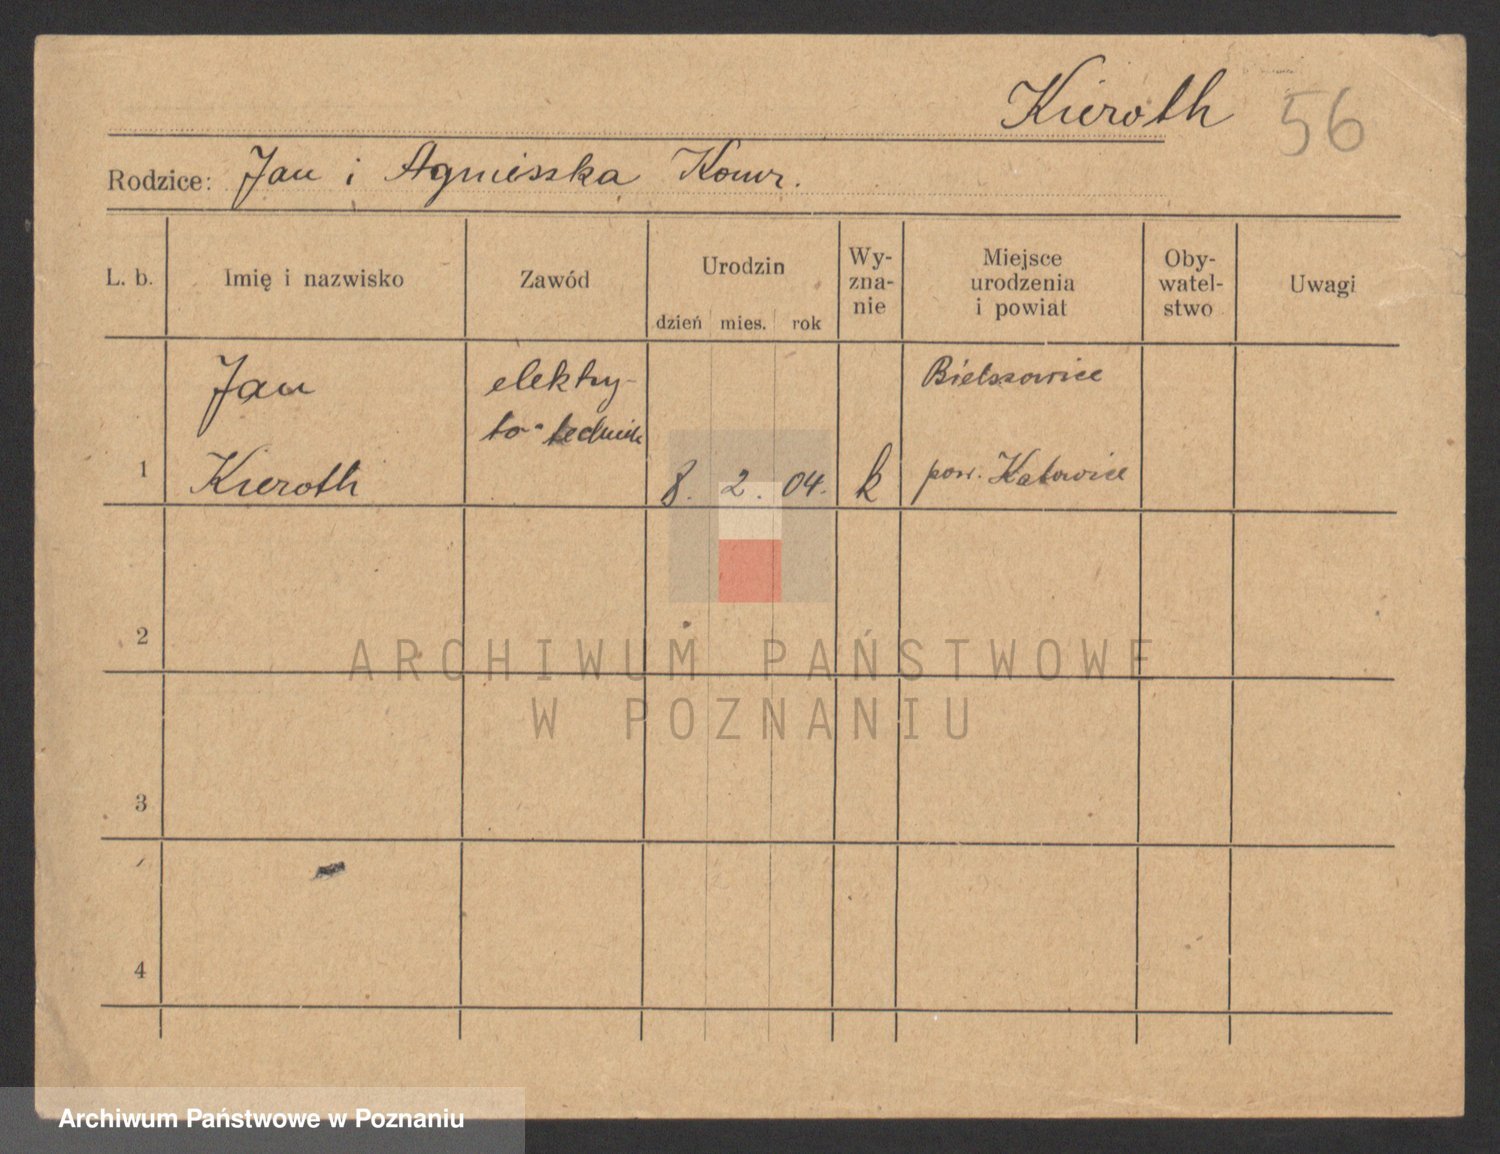 Kieroth 56
Rodzice: Jan i Agnieszka Konw.
L. b. Imię i nazwisko Zawód Urodzin dzień mies. rok Wy-zna-nie Miejsce urodzenia i powiat Oby-watel-stwo Uwagi
Jan elektry- Bielszowice
to-technik
1 Kieroth 8. 2. 04. k pow. Katowice
2
ARCHIWUM PAŃSTWOWE
W POZNANIU
3
4
Archiwum Państwowe w Poznaniu